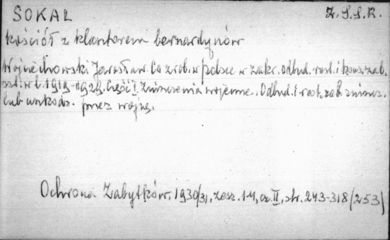 SOKAL Z.S.S.R.
Kościół z klasztorem bernardynów
Wojciechowski Jarosław. Co zrob. w Polsce w zakr. odbud. rest. i kons. zab.
w l. 1919-1929. Część I. Zniszczenia wojenne. Odbud. i rest. zab. zniszcz.
lub uszkodz. przez wojnę.
Ochrona Zabytków. 1930/31, zesz. 1-4, cz. II, str. 243-318 /253/